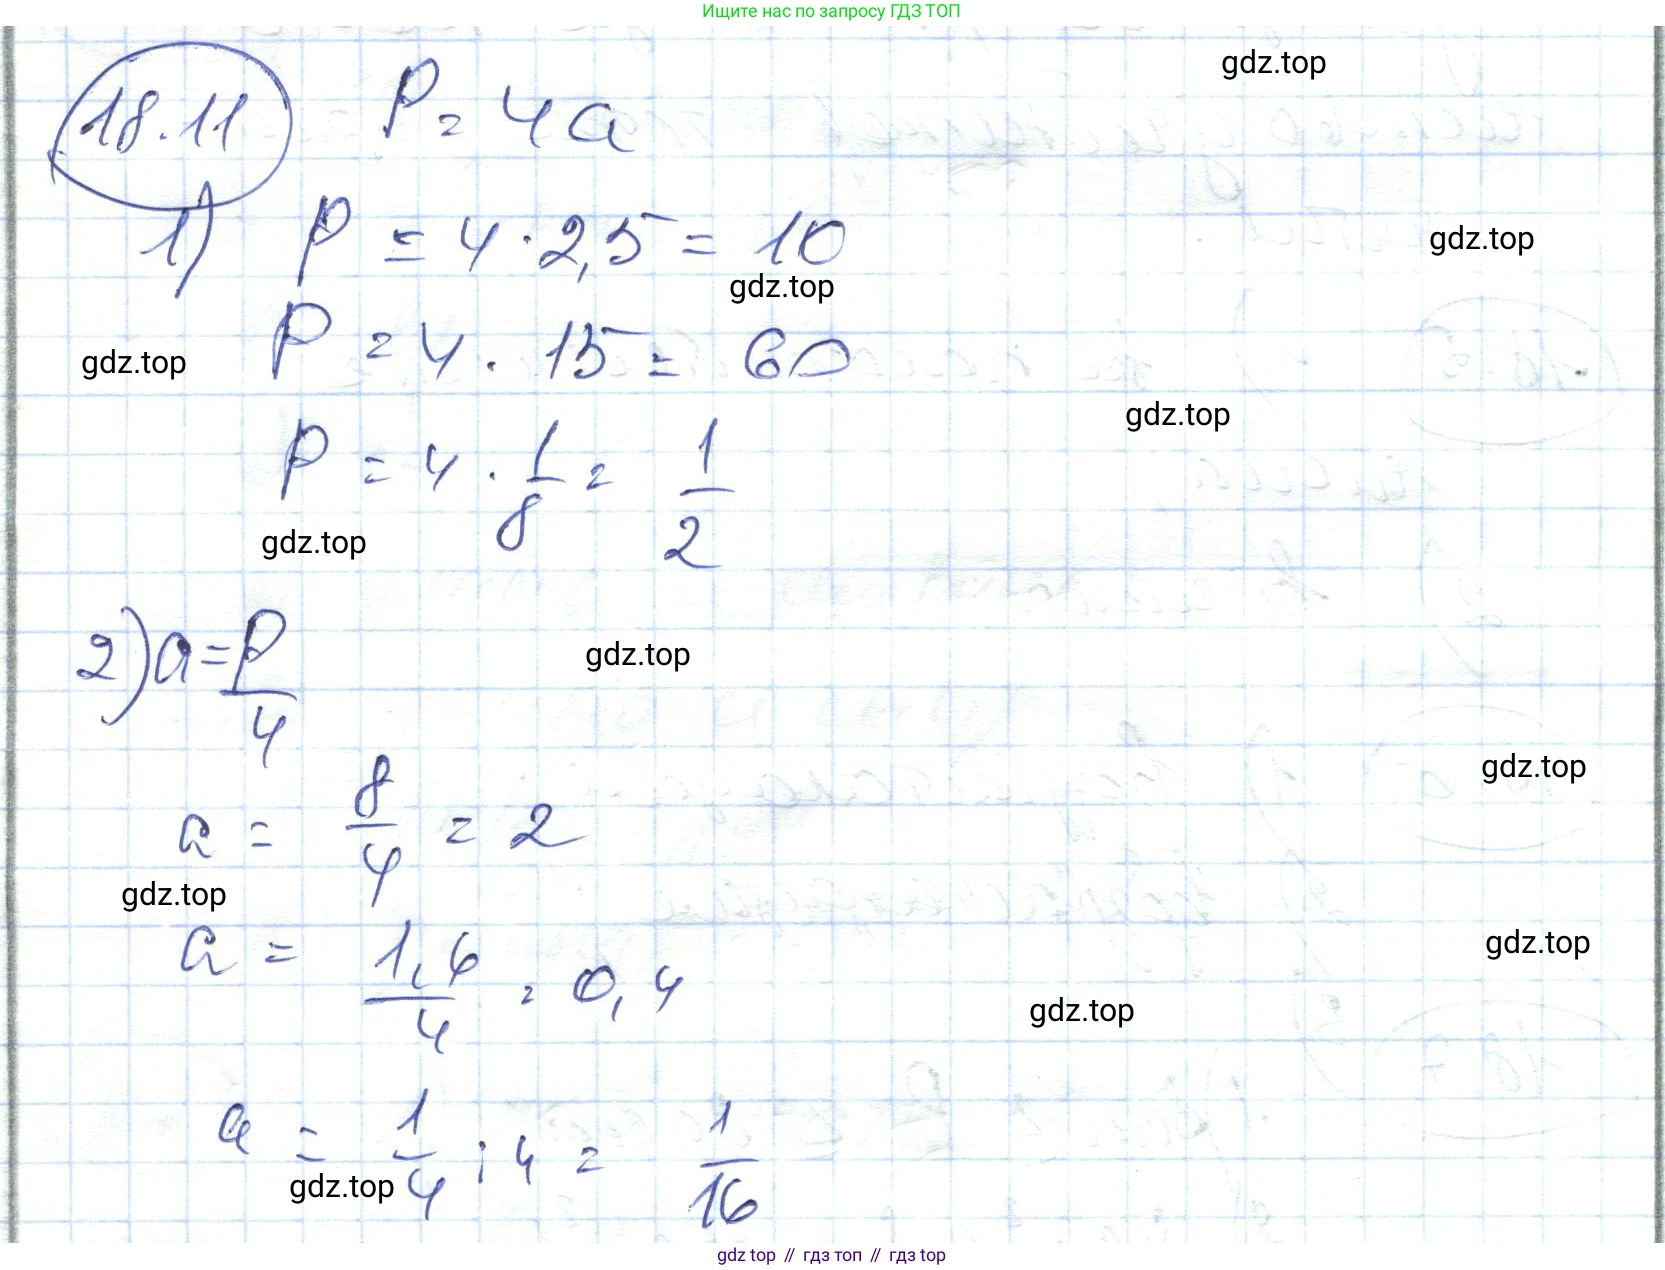 Ищите нас по запросу ГДЗ ТОП
gdz.top
18.11 P = 4a
1) P = 4 · 2,5 = 10
gdz.top
gdz.top
P = 4 · 15 = 60
gdz.top
gdz.top
P = 4 · 1/8 = 1/2
gdz.top
2) a = P/4
gdz.top
gdz.top
a = 8/4 = 2
gdz.top
a = 1,6/4 = 0,4
gdz.top
gdz.top
a = 1/4 : 4 = 1/16
gdz.top
gdz top // гдз топ // гдз top